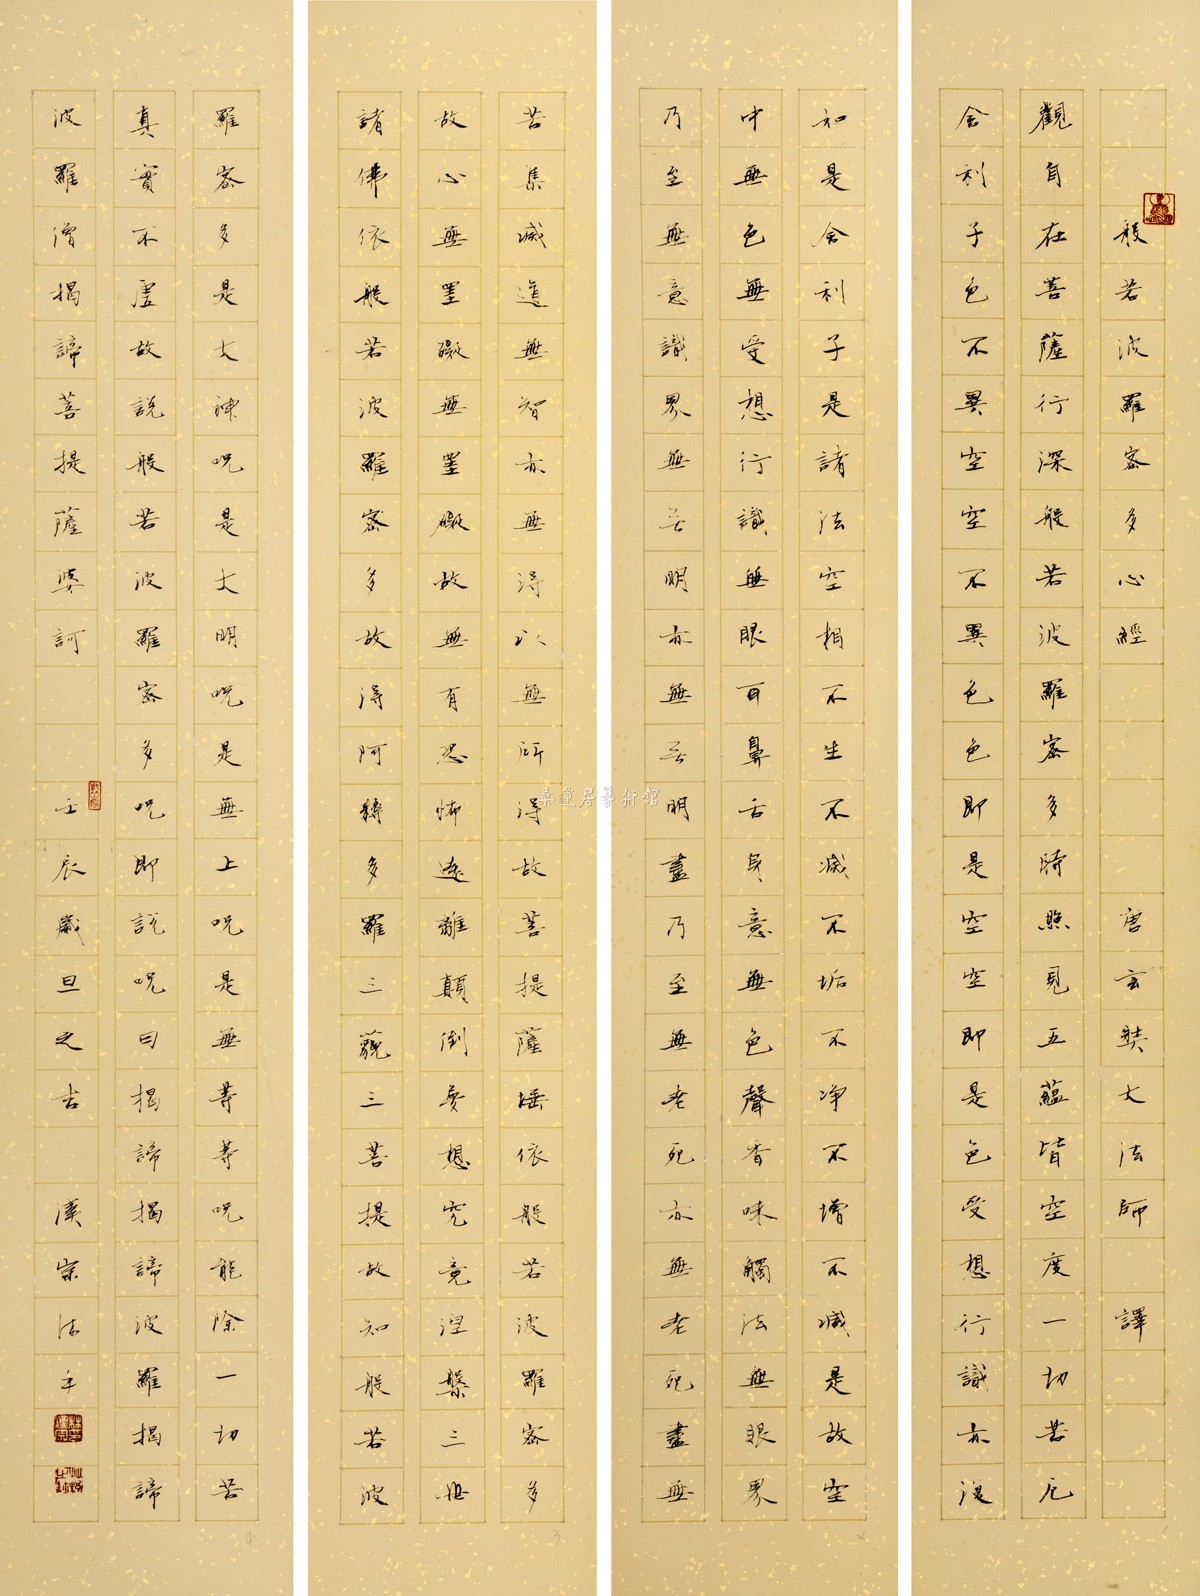 般若波羅密多心經 唐玄奘大法師 譯
觀自在菩薩行深般若波羅密多時照見五蘊皆空度一切苦厄
舍利子色不異空空不異色色即是空空即是色受想行識亦復
如是舍利子是諸法空相不生不滅不垢不净不增不減是故空
中無色無受想行識無眼耳鼻舌身意無色聲香味觸法無眼界
乃至無意識界無無明亦無無明盡乃至無老死亦無老死盡無
苦集滅道無智亦無得以無所得故菩提薩埵依般若波羅密多
故心無罣礙無罣礙故無有恐怖遠離顛倒夢想究竟涅槃三世
諸佛依般若波羅密多故得阿耨多羅三藐三菩提故知般若波
羅密多是大神呪是大明呪是無上呪是無等等呪能除一切苦
真實不虛故說般若波羅密多呪即說呪曰揭諦揭諦波羅揭諦
波羅僧揭諦菩提薩婆訶 壬辰歲旦之吉 漢宗
桑蓮居藝術館